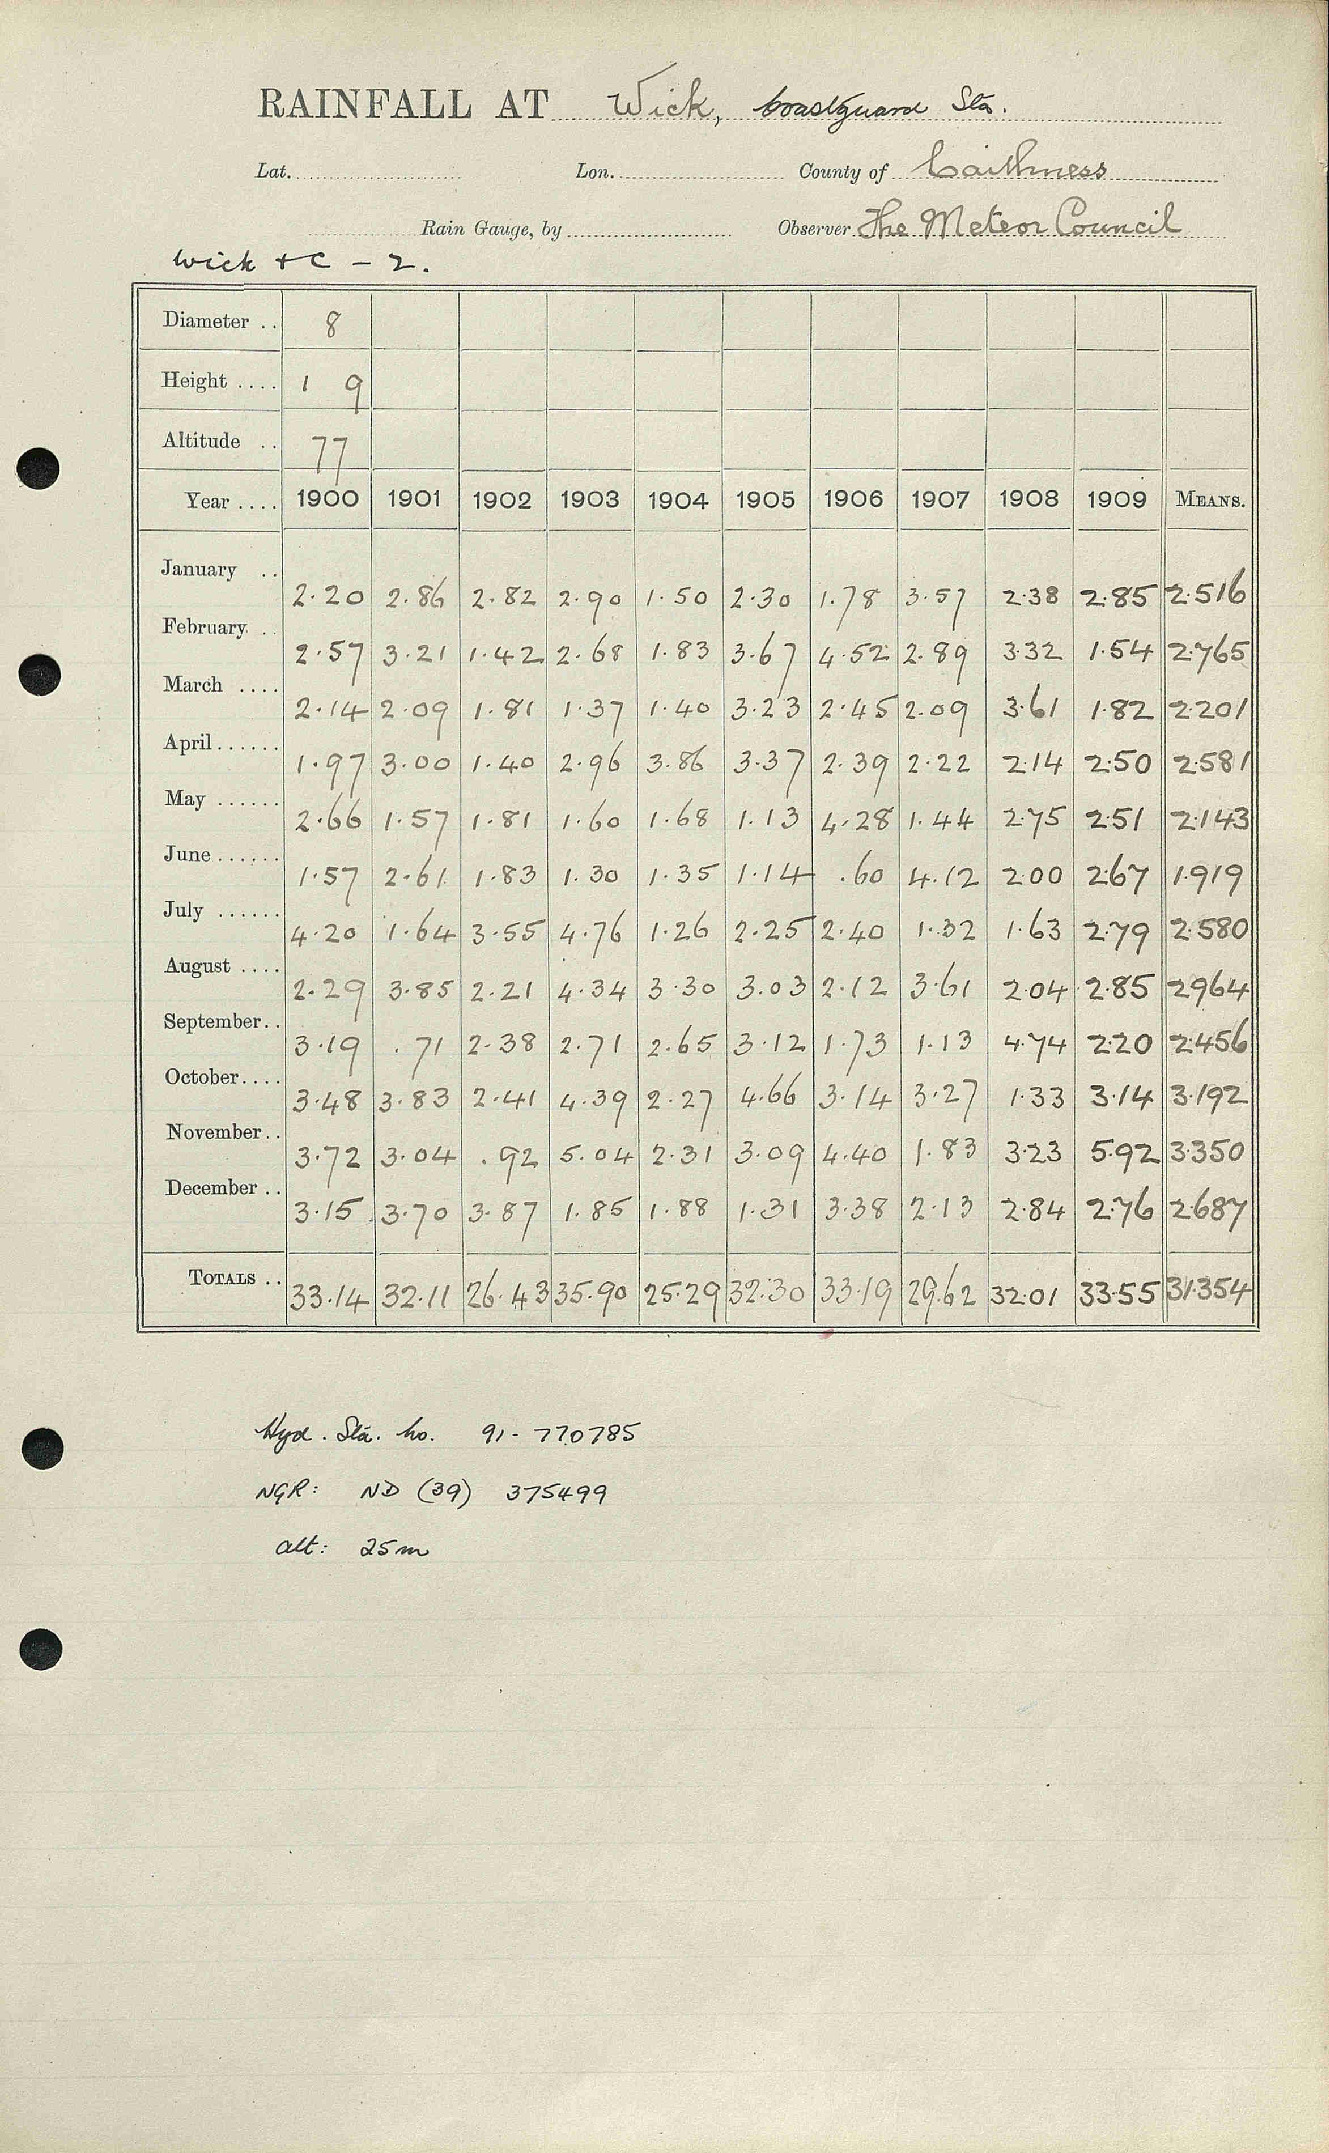 RAINFALL AT Wick, Coastguard Sta.
Lat. Lon. County of Caithness
Rain Gauge, by Observer The Meteor Council
Wick + C – 2.
Diameter .. 8
Height .... 1 9
Altitude .. 77
Year .... 1900 1901 1902 1903 1904 1905 1906 1907 1908 1909 MEANS.
January .. 2.20 2.86 2.82 2.90 1.50 2.30 1.78 3.57 2.38 2.85 2.516
February. . 2.57 3.21 1.42 2.68 1.83 3.67 4.52 2.89 3.32 1.54 2.765
March .... 2.14 2.09 1.81 1.37 1.40 3.23 2.45 2.09 3.61 1.82 2.201
April...... 1.97 3.00 1.40 2.96 3.86 3.37 2.39 2.22 2.14 2.50 2.581
May ...... 2.66 1.57 1.81 1.60 1.68 1.13 4.28 1.44 2.75 2.51 2.143
June ...... 1.57 2.61 1.83 1.30 1.35 1.14 .60 4.12 2.00 2.67 1.919
July ...... 4.20 1.64 3.55 4.76 1.26 2.25 2.40 1.32 1.63 2.79 2.580
August .... 2.29 3.85 2.21 4.34 3.30 3.03 2.12 3.61 2.04 2.85 2.964
September.. 3.19 .71 2.38 2.71 2.65 3.12 1.73 1.13 4.74 2.20 2.456
October.... 3.48 3.83 2.41 4.39 2.27 4.66 3.14 3.27 1.33 3.14 3.192
November.. 3.72 3.04 .92 5.04 2.31 3.09 4.40 1.83 3.23 5.92 3.350
December .. 3.15 3.70 3.87 1.85 1.88 1.31 3.38 2.13 2.84 2.76 2.687
TOTALS .. 33.14 32.11 26.43 35.90 25.29 32.30 33.19 29.62 32.01 33.55 31.354
Hyd. Sta. No. 91- 770785
NGR: ND (39) 375499
alt: 25m